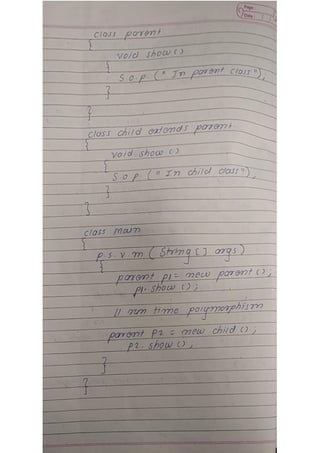 Page:
Date:
class parent
{
void show()
{
S.o.p. ("In parent class");
}
}
class child extends parent
{
void show()
{
S.o.p ("In child class");
}
}
class main
{
p.s.v.m (String[] args)
{
parent p1 = new parent();
p1.show();
// run time polymorphism
parent p2 = new child();
p2.show();
}
}